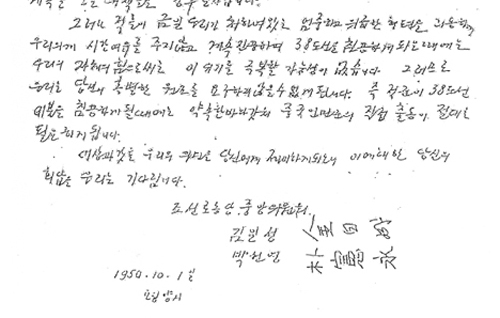 그러나 적들이 금일 우리가 처하여있는 엄중하고 위급한 형편을 리용하여
우리에게 시간여유를 주지않고 계속진공하여 38도선을 침공하게되는때에는
우리의 자체의 힘으로써는 이 위기를 극복할 가능성이 없습니다. 그러므로
우리는 당신의 특별한 원조를 요구하지 않을수 없게 됩니다. 즉 적군이 38도선
이북을 침공하게될때에는 약속한바와같이 중국인민군의 직접 출동이 절대로
필요하게 됩니다.
이상과같은 우리의 의견을 당신에게 제의하게되오니 이에대한 당신의
회답을 우리는 기다립니다.
조선로동당 중앙위원회
김일성 金日成
박헌영 朴憲永
1950.10.1일
평양시